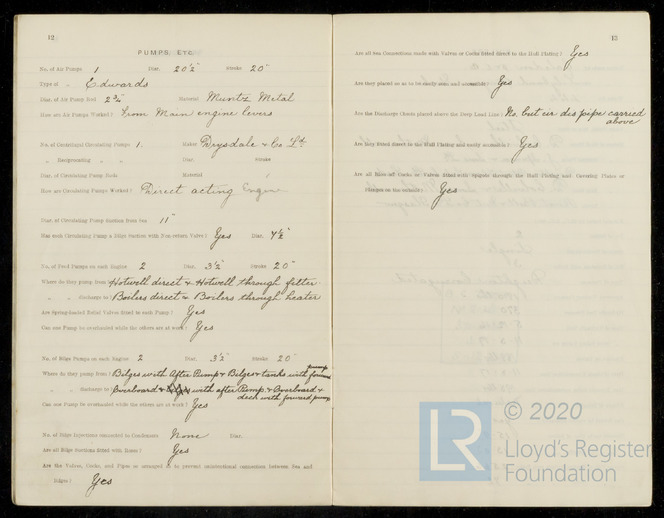 12
PUMPS, ETC.
No. of Air Pumps 1 Diar. 20½" Stroke 20"
Type of „ Edwards
Diar. of Air Pump Rod 2¾" Material Muntz Metal
How are Air Pumps Worked? From Main engine levers
No. of Centrifugal Circulating Pumps 1. Maker Drysdale & Co Ltd
„ Reciprocating „ „ Diar. Stroke
Diar. of Circulating Pump Rods Material
How are Circulating Pumps Worked? Direct acting Engine
Diar. of Circulating Pump Suction from Sea 11"
Has each Circulating Pump a Bilge Suction with Non-return Valve? Yes Diar. 4½"
No. of Feed Pumps on each Engine 2 Diar. 3½" Stroke 20"
Where do they pump from? Hotwell direct & Hotwell through filter
„ „ discharge to? Boilers direct & Boilers through heater
Are Spring-loaded Relief Valves fitted to each Pump? Yes
Can one Pump be overhauled while the others are at work? Yes
No. of Bilge Pumps on each Engine 2 Diar. 3½" Stroke 20"
Where do they pump from? Bilges with After Pump & Bilges & tanks with forward pump
„ „ discharge to? Overboard & with after Pump. & Overboard & deck with forward pump
Can one Pump be overhauled while the others are at work? Yes
No. of Bilge Injections connected to Condensers None Diar.
Are all Bilge Suctions fitted with Roses? Yes
Are the Valves, Cocks, and Pipes so arranged as to prevent unintentional connection between Sea and
Bilges? Yes
13
Are all Sea Connections made with Valves or Cocks fitted direct to the Hull Plating? Yes
Are they placed so as to be easily seen and accessible? Yes
Are the Discharge Chests placed above the Deep Load Line? No, but cir dis pipe carried
above
Are they fitted direct to the Hull Plating and easily accessible? Yes
Are all Blow-off Cocks or Valves fitted with Spigots through the Hull Plating and Covering Plates or
Flanges on the outside? Yes
LR
© 2020
Lloyd's Register
Foundation